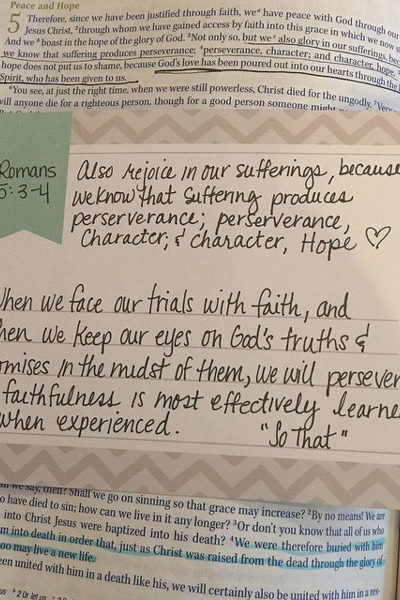 Peace and Hope
5 Therefore, since we have been justified through faith, weᵃ have peace with God through our
Jesus Christ, ²through whom we have gained access by faith into this grace in which we now
And weᵇ boast in the hope of the glory of God. ³Not only so, but weᶜ also glory in our sufferings,
we know that suffering produces perseverance; ⁴perseverance, character; and character, hope.
hope does not put us to shame, because God's love has been poured out into our hearts through the
Spirit, who has been given to us.
⁶You see, at just the right time, when we were still powerless, Christ died for the ungodly.
will anyone die for a righteous person, though for a good person someone might
Romans
5:3-4
Also rejoice in our sufferings, because
we know that suffering produces
perserverance; perserverance,
Character; & character, Hope ♡
hen we face our trials with faith, and
hen we keep our eyes on God's truths &
omises in the midst of them, we will persever
faithfulness is most effectively learne
when experienced. "So That"
we say, then? Shall we go on sinning so that grace may increase? ²By no means! We are
o have died to sin; how can we live in it any longer? ³Or don't you know that all of us who
into Christ Jesus were baptized into his death? ⁴We were therefore buried with him
m into death in order that, just as Christ was raised from the dead through the glory of
oo may live a new life.
een united with him in a death like his, we will certainly also be united with him in a res-